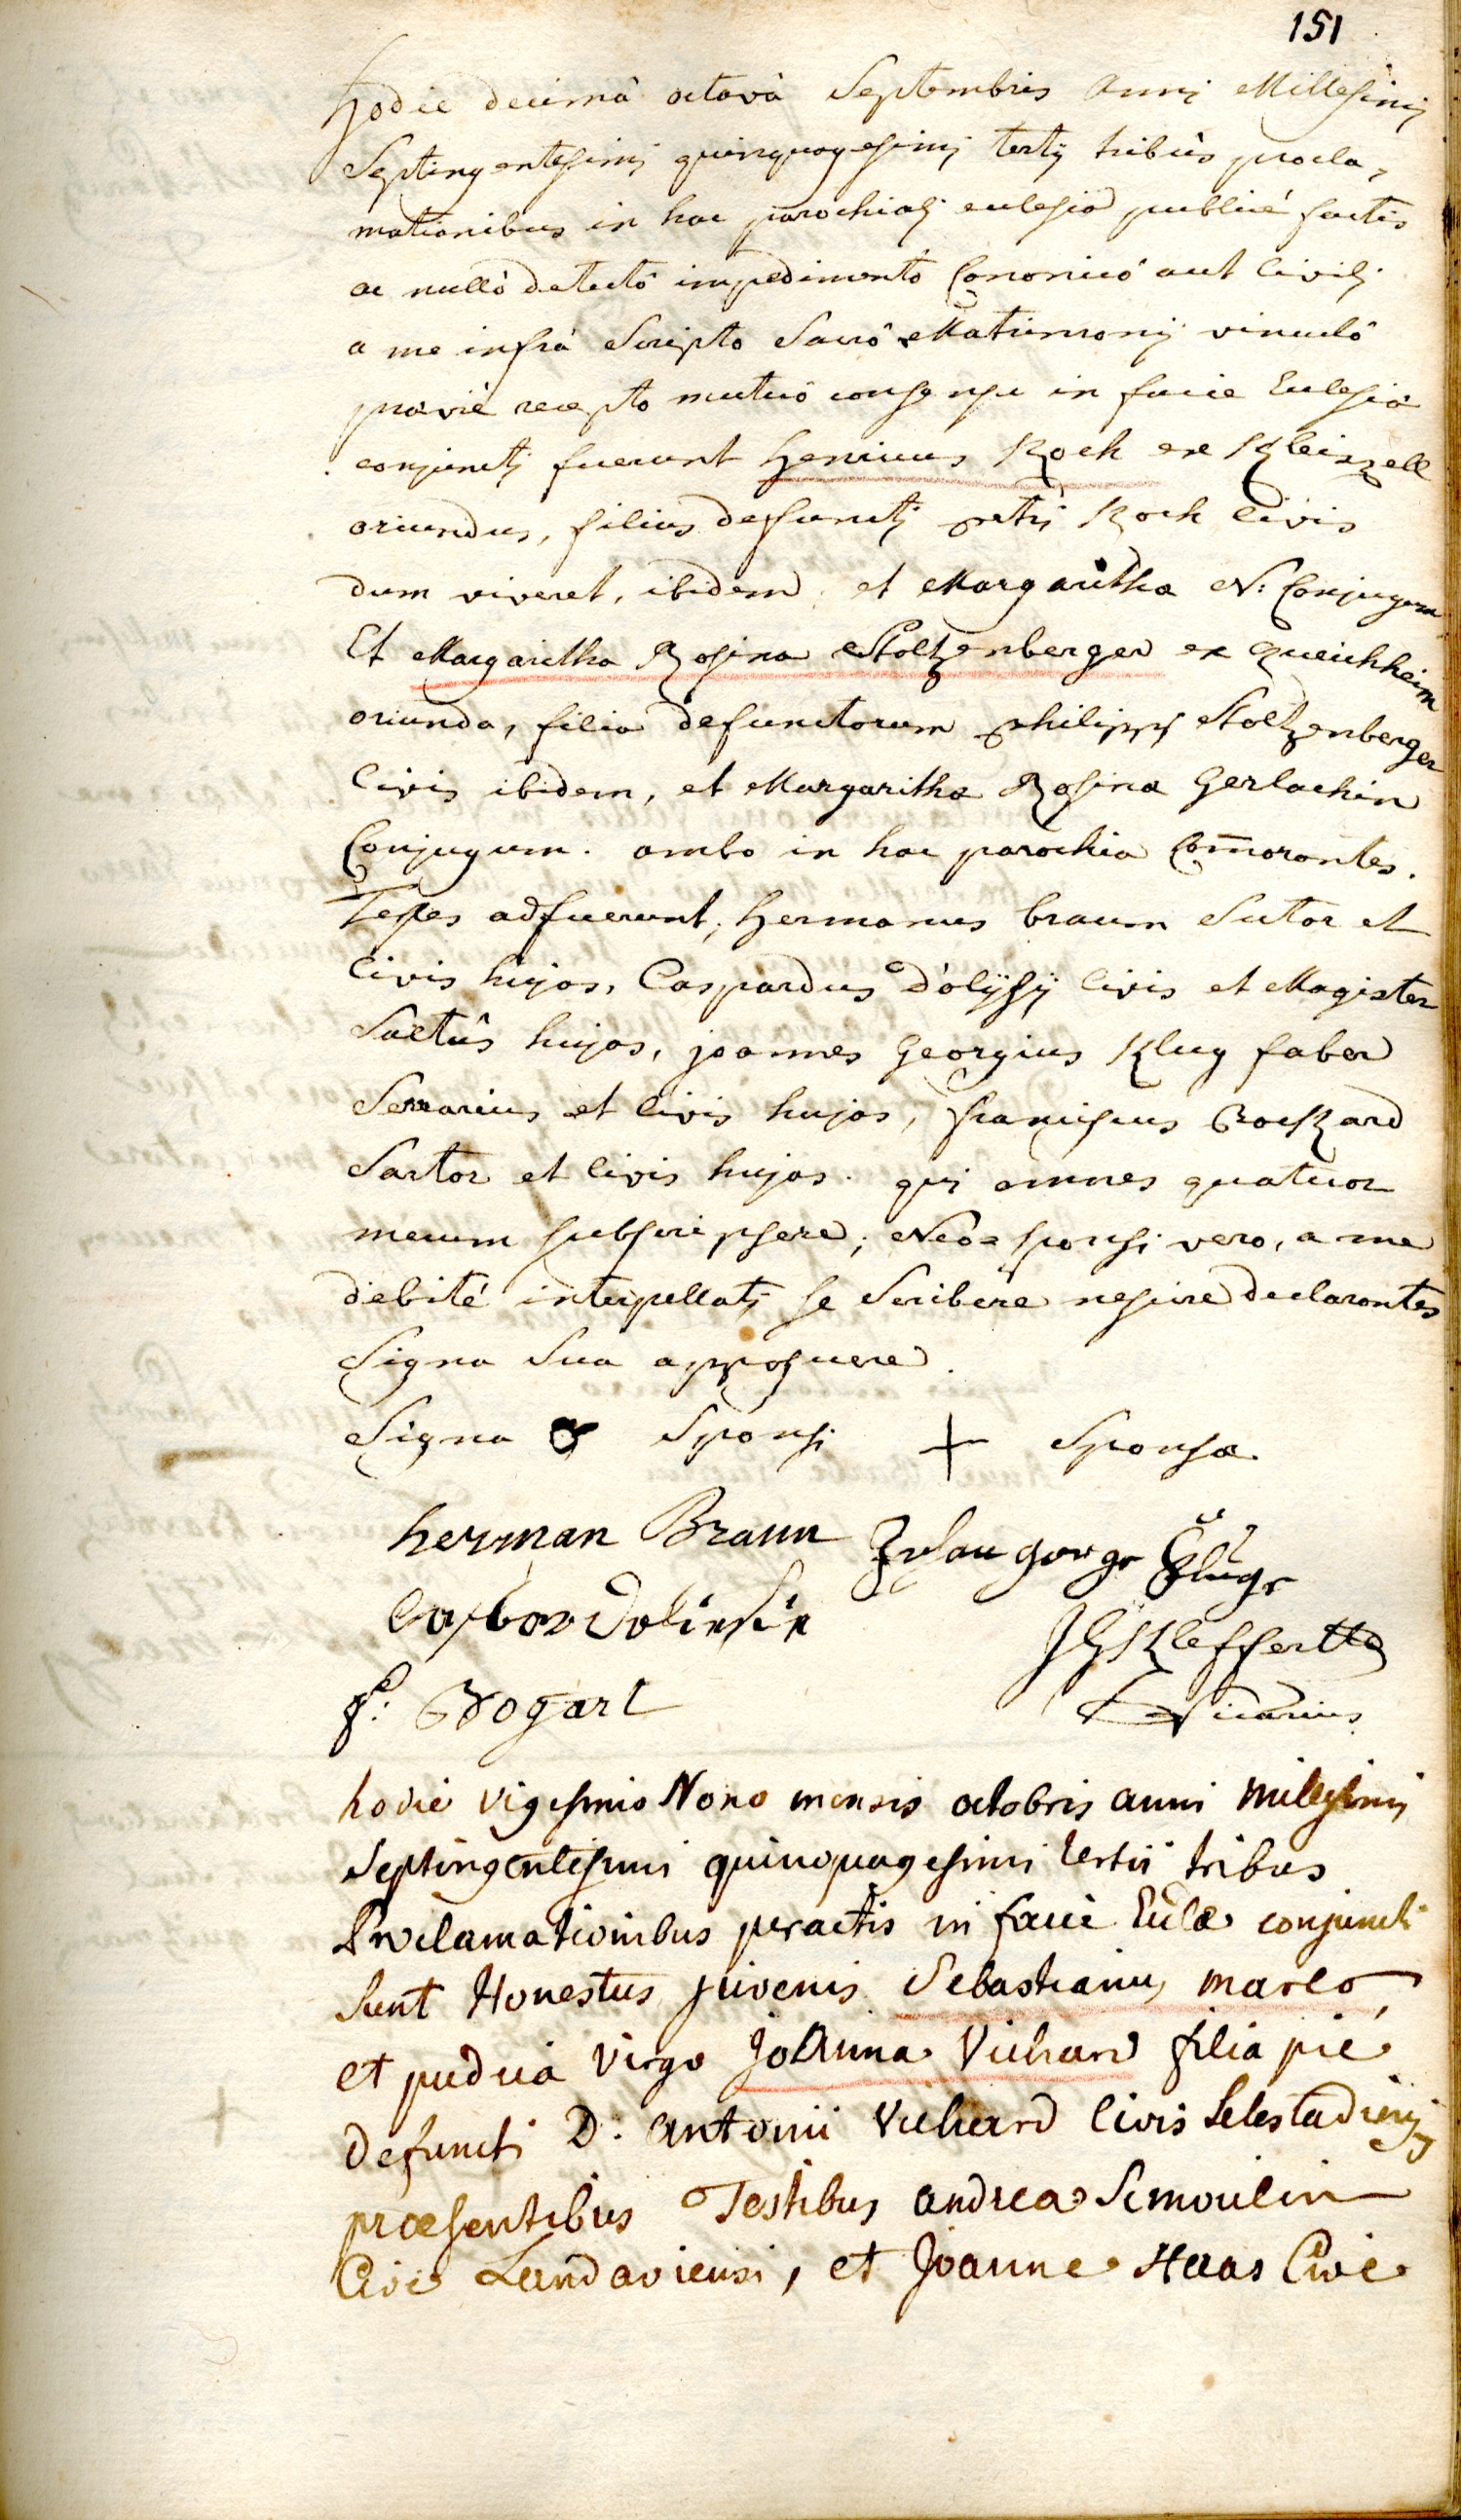 151
Hodie decimâ octavâ Septembris Anni Millesimj
Septingentesimj quinquagesimj tertij tribùs procla-
mationibus in hac parochialj ecclesiâ publicé factis
ac nullô detectô impedimentô Canonicô aut Civilj
a me infrà Scripto Sacrô Matrimonij vinculô
praeviè recepto mutuô consensu in facie Ecclesiae
conjunctj fuerunt Henricus Koch ex Kleinzell
oriundus, filius defunctj petri Koch Civis
dum viveret, ibidem, et Margarithae N: Conjugum
Et Margaritha Rosina Stoltzenberger ex Queichheim
oriunda, filia defunctorum philippj Stoltzenberger
Civis ibidem, et Margarithae Rosinae Gerlachin
Conjugum. ambo in hac parochia Com̄orantes.
Testes adfuerunt, Hermanus braun Sutor et
Civis hujas, Caspardus D'olÿsÿ Civis et Magister
Saltûs hujas, joannes Georgius Klug faber
Serrarius et Civis hujas, franciscus Bockard
Sartor et Civis hujas. qui omnes quatuor
mecum subscripsere; Neo-sponsi vero, a me
debité interpellatj se Scribere nescire declarantes
Signa Sua apposuere.
Signa Sponsi + Sponsae
herman Braun Johan georg Kluge
Casbar Dolisie
JG Kleffer
f: Bogart
Vicarius
hodie vigesimo Nono mensis octobris anni millesimi
Septingentesimi quinquagesimi tertii tribus
Proclamationibus peractis in facie Eccl̄ae conjuncti
sunt Honestus juvenis Sebastianus marco,
et pudica virgo JoAnna Vichard filia pié
defuncti D: Antonii Vichard Civis Selestadiensis
praesentibus Testibus andrea Semoulin
Cive Landaviensi, et Joanne Haas Cive